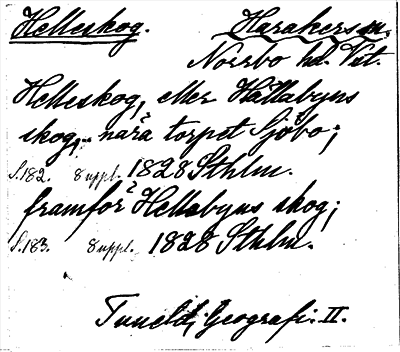 Helleskog. Harakers sn.
Norrbo hd. Vst.
Helleskog, eller Hällabyns
skog, nära torpet Sjöbo;
S.182. 8 uppl. 1828 Sthlm.
framför Hellabyns skog;
S.183. 8 uppl. 1828 Sthlm.
Tuneld, Geografi. II.